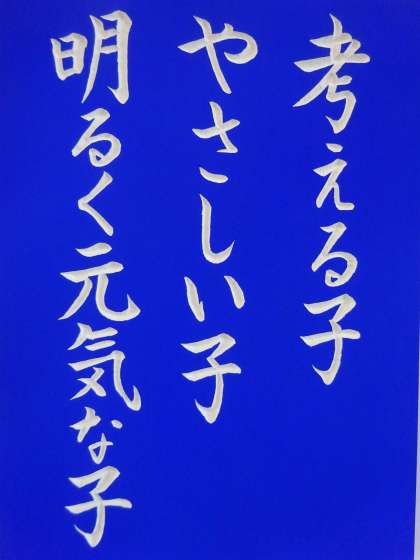 考える子
やさしい子
明るく元気な子